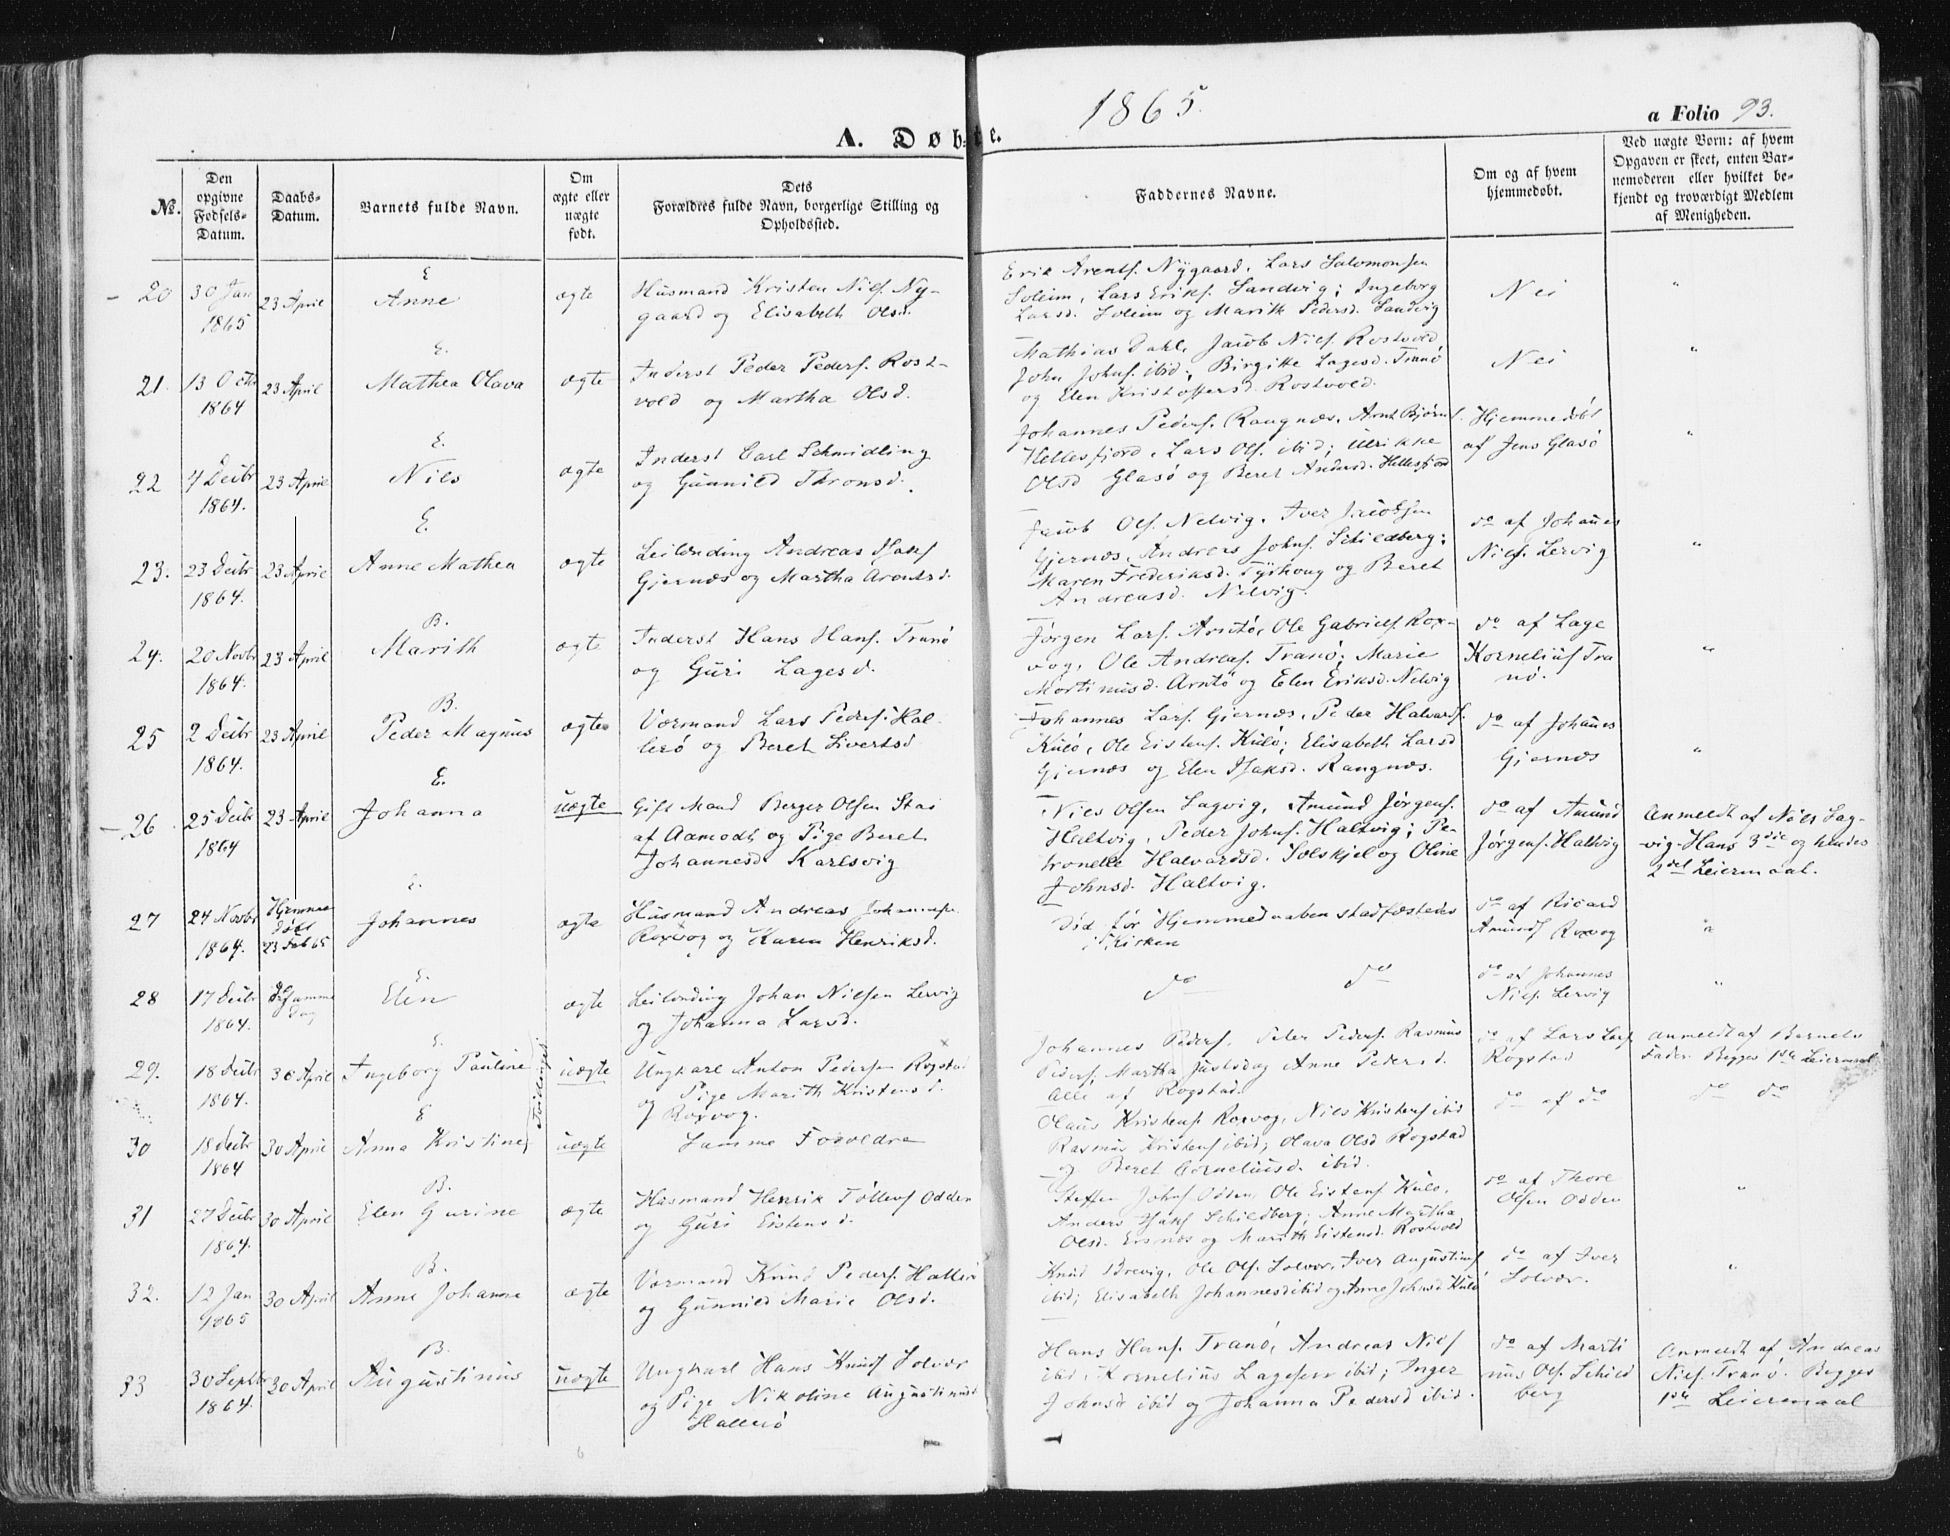 1865.
a Folio 93.
A. Døbte.
No.
Den opgivne Fødsels-Datum.
Daabs-Datum.
Barnets fulde Navn.
Om ægte eller uægte født.
Dets Forældres fulde Navn, borgerlige Stilling og Opholdssted.
Faddernes Navne.
Om og af hvem hjemmedøbt.
Ved uægte Børn: af hvem Opgaven er skeet, enten Barnemoderen eller hvilket bekjendt og troværdigt Medlem af Menigheden.
20
30 Jan 1865
23 April
E
Anne
ægte
Husmand Kristen Nils. Ny-
gaard og Elisabeth Olsd.
Erik Arents. Nygaard, Lars Salomonsen
Soleim, Lars Eriks. Sandvig; Ingeborg
Larsd. Soleim og Marith Pedersd. Sandvig
Nei
"
21.
13 Octb 1864
23 April
E.
Mathea Olava
ægte
Inderst Peder Peders. Rost-
vold og Martha Olsd.
Mathias Dahl, Jacob Niels. Rostvold
John Johns. ibid; Birgitte Lagesd. Tranø
og Elen Kristoffersd. Rostvold.
Nei
"
22
7 Decbr 1864.
23 April
E.
Nils
ægte
Inderst Carl Schmidling
og Gunnild Thronsd.
Johannes Peders. Rangnæs, Arnt Bjørns.
Hellesfjord, Lars Ols. ibid; Ulrikke
Olsd Glasø og Beret Andersd. Hellesfjord
Hjemmedøbt
af Jens Glasø
"
23.
23 Decbr 1864.
23 April
E.
Anne Mathea
ægte
Leilending Andreas Isaks
Gjernæs og Martha Arontsd.
Jacob Ols. Nelvig, Iver Jacobsen
Gjernæs, Andreas Johns. Schildberg;
Maren Frederiksd. Tyshoug og Beret
Andreasd. Nelvig.
do af Johanes
Niels. Lervig
"
24.
20 Novbr 1864.
23 April
B.
Marith
ægte
Inderst Hans Hans. Tranø
og Guri Lagesd.
Jørgen Lars. Arntø, Ole Gabriels. Rox-
vog, Ole Andreas. Tranø; Marie
Mortinusd. Arntø og Elen Eriksd. Nelvig
do af Lage
Kornelius Tra
nø.
"
25
2 Decbr 1864.
23 April
B.
Peder Magnus
ægte
Værmand Lars Peders. Hal-
lerø og Beret Sivertsd
Johannes Lars. Gjernæs, Peder Halvards.
Kulø, Ole Eistens. Kulø; Elisabeth Larsd
Gjernæs og Elen Isaksd. Rangnæs.
do af Johanes
Gjernæs
"
26
25 Decbr 1864
23 April
E.
Johanna
uægte
Gift Mand Berger Olsen Stai
af Aamodt og Pige Beret
Johannesd. Karlsvig
Niels Olsen Lagvig, Amund Jørgens.
Haltvig, Peder Johns. Haltvig; Pe-
tronelle Halvardsd. Solskjel og Oline
Johnsd. Haltvig.
do af Amund
Jørgens. Haltvig
Anmeldt af Nils Lag-
vig. Hans 3die og hendes
2det Leiermaal.
27
24 Novbr 1864.
Hjemme døbt 23 Feb 65
E.
Johannes
ægte
Husmand Andreas Johannesen
Roxvog og Karen Henriksd.
Død før Hjemmedaaben stadfæstedes
i Kirken
do af Ricard
Amunds Roxvog
"
28
17 Decbr 1864.
do samme Dag
E.
Elen
ægte
Leilending Johan Nielsen Lervig
og Johanna Larsd.
do do
do af Johannes
Niels. Lervig
"
29.
18 Decbr 1864.
30 April
E.
Ingeborg Pauline
Tvillinger
uægte
Ungkarl Anton Pedersen Rogstad
og Pige Marith Kristensd.
Roxvog.
Johannes Peders, Peter Peders. Rasmus
Peders, Martha Justsdag Anne Pedersd.
Alle af Rogstad.
do af Lars Lars
Rogstad
Anmeldt af Barnets
Fader. Begges 1ste Leiermaal
30
18 Decbr 1864
30 April
E
Anna Kristine
uægte
Samme Forældre
Olaus Kristens. Roxvog, Niels Kristens ibid
Rasmus Kristens ibid; Olava Olsd Rogstad
og Beret Corneliusd. ibid.
do af do
do do
31
27 Decbr 1864.
30 April
B.
Elen Gurine
ægte
Husmand Henrik Tollevs Odden
og Guri Eistensd.
Steffen Johns Odden, Ole Eistens Kulø,
Anders Isaks Schildberg; Anne Martha
Olsd. Ersnes og Marith Eistensd. Rostvold
do af Thore
Olsen Odden
"
32.
12 Jan 1865
30 April
B.
Anne Johanna
ægte
Værmand Knud Peders. Hallerø
og Gunnild Marie Olsd.
Knud Brevig, Ole Ols. Solvær, Iver Augustins
ibid; Elisabeth Johannesd ibid og Anne Johnsd Kulø
do af Iver
Solvær.
"
33
30 Septbr 1864.
30 April
B.
Augustinus
uægte
Ungkarl Hans Knuds Solvær
og Pige Nikoline Augustinusd
Hallerø
Hans Hans. Tranø, Andreas Niels
ibid, Kornelius Lagesen ibid; Inger
Johnsd ibid og Johanna Pedersd ibid.
do af Marti
nus Ols. Schild
berg
Anmeldt af Andreas
Niels. Tranø. Begges
1ste Leiermaal